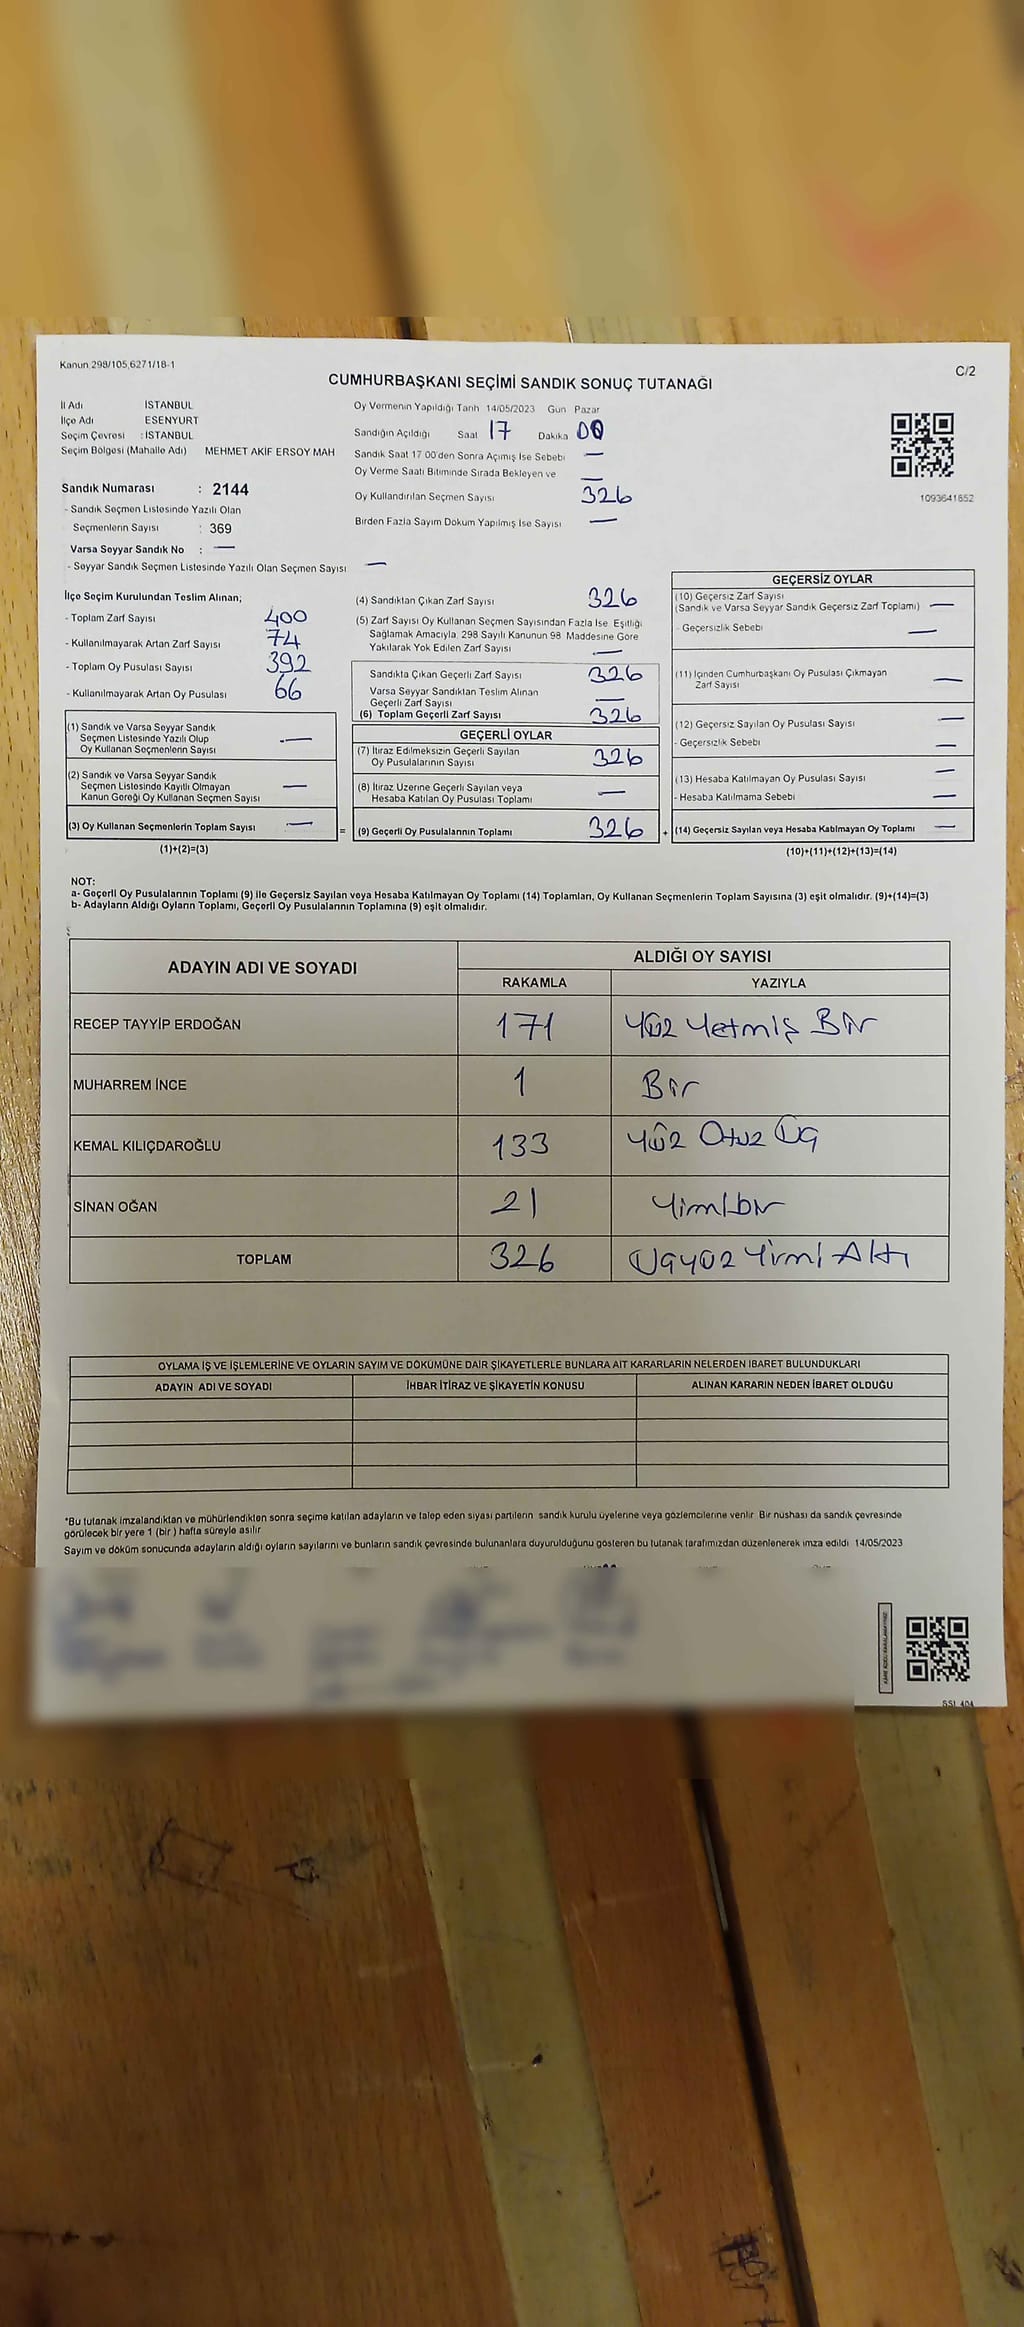 Kanun 298/105,6271/18-1
C/2
CUMHURBAŞKANI SEÇİMİ SANDIK SONUÇ TUTANAĞI
İl Adı İSTANBUL
İlçe Adı ESENYURT
Seçim Çevresi : İSTANBUL
Seçim Bölgesi (Mahalle Adı) MEHMET AKİF ERSOY MAH
Sandık Numarası : 2144
- Sandık Seçmen Listesinde Yazılı Olan
Seçmenlerin Sayısı : 369
Varsa Seyyar Sandık No : —
- Seyyar Sandık Seçmen Listesinde Yazılı Olan Seçmen Sayısı —
Oy Vermenin Yapıldığı Tarih 14/05/2023 Gün Pazar
Sandığın Açıldığı Saat 17 Dakika 00
Sandık Saat 17 00'den Sonra Açımış İse Sebebi —
Oy Verme Saati Bitiminde Sırada Bekleyen ve —
Oy Kullandırılan Seçmen Sayısı 326
Birden Fazla Sayım Döküm Yapılmış İse Sayısı —
1093641852
İlçe Seçim Kurulundan Teslim Alınan;
- Toplam Zarf Sayısı 400
- Kullanılmayarak Artan Zarf Sayısı 74
- Toplam Oy Pusulası Sayısı 392
- Kullanılmayarak Artan Oy Pusulası 66
(1) Sandık ve Varsa Seyyar Sandık
Seçmen Listesinde Yazılı Olup
Oy Kullanan Seçmenlerin Sayısı —
(2) Sandık ve Varsa Seyyar Sandık
Seçmen Listesinde Kayıtlı Olmayan
Kanun Gereği Oy Kullanan Seçmen Sayısı —
(3) Oy Kullanan Seçmenlerin Toplam Sayısı —
(1)+(2)=(3)
=
(4) Sandıktan Çıkan Zarf Sayısı 326
(5) Zarf Sayısı Oy Kullanan Seçmen Sayısından Fazla İse, Eşitliği
Sağlamak Amacıyla, 298 Sayılı Kanunun 98 Maddesine Göre
Yakılarak Yok Edilen Zarf Sayısı —
Sandıkta Çıkan Geçerli Zarf Sayısı 326
Varsa Seyyar Sandıktan Teslim Alınan
Geçerli Zarf Sayısı —
(6) Toplam Geçerli Zarf Sayısı 326
GEÇERLİ OYLAR
(7) İtiraz Edilmeksizin Geçerli Sayılan
Oy Pusulalarının Sayısı 326
(8) İtiraz Üzerine Geçerli Sayılan veya
Hesaba Katılan Oy Pusulası Toplamı —
(9) Geçerli Oy Pusulalarının Toplamı 326
+
GEÇERSİZ OYLAR
(10) Geçersiz Zarf Sayısı
(Sandık ve Varsa Seyyar Sandık Geçersiz Zarf Toplamı) —
- Geçersizlik Sebebi —
(11) İçinden Cumhurbaşkanı Oy Pusulası Çıkmayan
Zarf Sayısı —
(12) Geçersiz Sayılan Oy Pusulası Sayısı —
- Geçersizlik Sebebi —
(13) Hesaba Katılmayan Oy Pusulası Sayısı —
- Hesaba Katılmama Sebebi —
(14) Geçersiz Sayılan veya Hesaba Katılmayan Oy Toplamı —
(10)+(11)+(12)+(13)=(14)
NOT:
a- Geçerli Oy Pusulalarının Toplamı (9) ile Geçersiz Sayılan veya Hesaba Katılmayan Oy Toplamı (14) Toplamları, Oy Kullanan Seçmenlerin Toplam Sayısına (3) eşit olmalıdır. (9)+(14)=(3)
b- Adayların Aldığı Oyların Toplamı, Geçerli Oy Pusulalarının Toplamına (9) eşit olmalıdır.
ADAYIN ADI VE SOYADI ALDIĞI OY SAYISI
RAKAMLA YAZIYLA
RECEP TAYYİP ERDOĞAN 171 Yüz Yetmiş Bir
MUHARREM İNCE 1 Bir
KEMAL KILIÇDAROĞLU 133 Yüz Otuz Üç
SİNAN OĞAN 21 Yirmibir
TOPLAM 326 Üçyüz Yirmi Altı
OYLAMA İŞ VE İŞLEMLERİNE VE OYLARIN SAYIM VE DÖKÜMÜNE DAİR ŞİKAYETLERLE BUNLARA AİT KARARLARIN NELERDEN İBARET BULUNDUKLARI
ADAYIN ADI VE SOYADI İHBAR İTİRAZ VE ŞİKAYETİN KONUSU ALINAN KARARIN NEDEN İBARET OLDUĞU
*Bu tutanak imzalandıktan ve mühürlendikten sonra seçime katılan adayların ve talep eden siyasi partilerin sandık kurulu üyelerine veya gözlemcilerine verilir Bir nüshası da sandık çevresinde
görülecek bir yere 1 (bir ) hafta süreyle asılır
Sayım ve döküm sonucunda adayların aldığı oyların sayılarını ve bunların sandık çevresinde bulunanlara duyurulduğunu gösteren bu tutanak tarafımızdan düzenlenerek imza edildi 14/05/2023